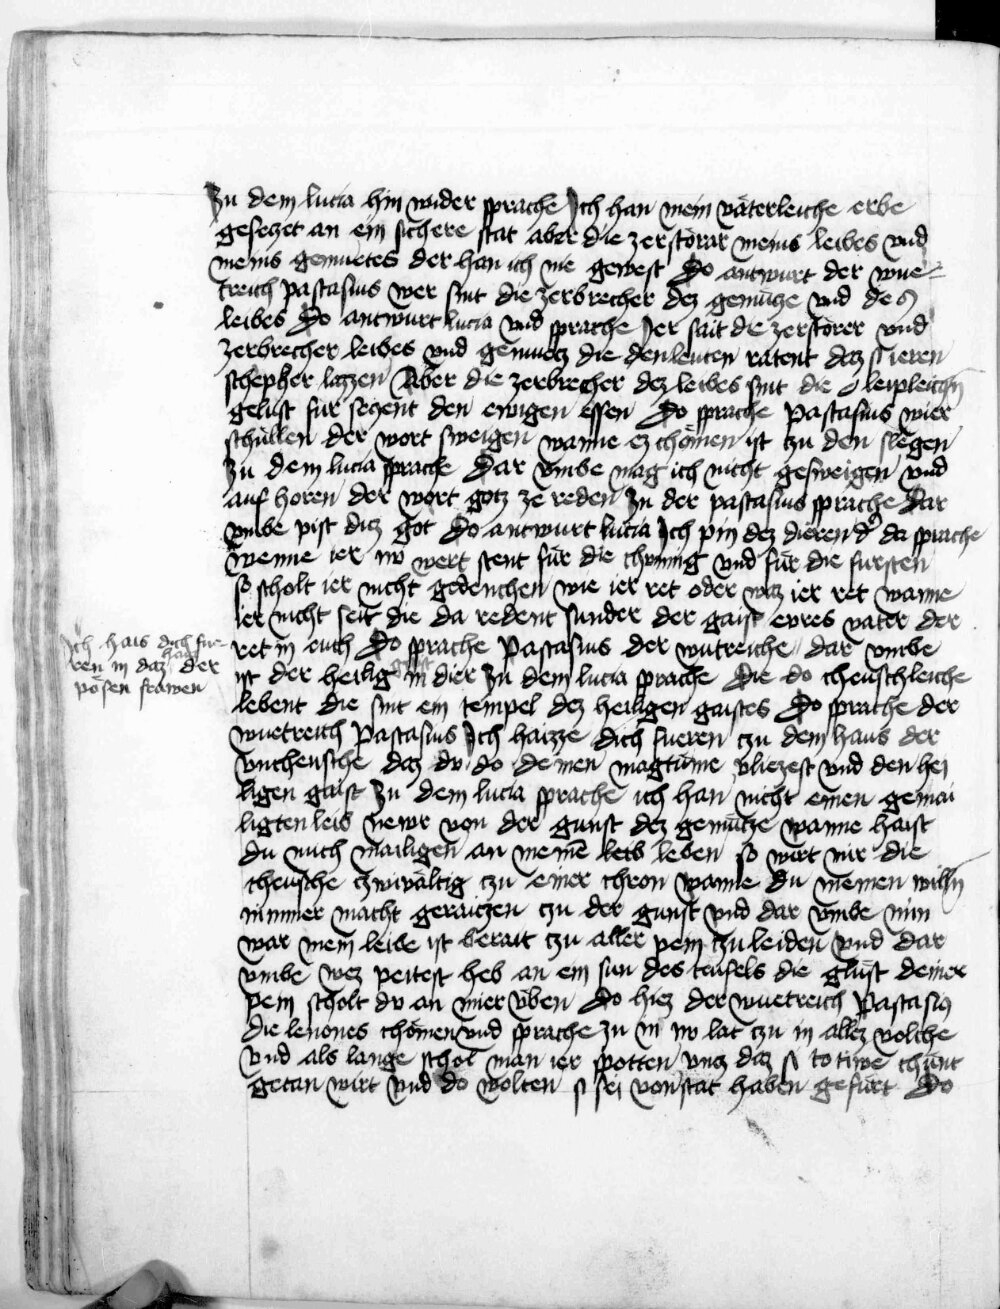 Zu dem lucia hin wider sprache Ich han mein väterleiche erbe
gesetzet an ein sichere stat aber die zerstörär meins leibes vnd
meins gemuetes der han ich nie gewest Do antwurt der wue-
treich pastasius wer sint die zerbrecher dez gemutze vnd des
leibes Do antwurt lucia vnd sprache Ier sait die zerstörer vnd
zerbrecher leibes vnd gemuetz die den leuten ratent daz si ieren
schepher lazzen Aber die zerbrecher dez leibes sint die leipleichn
gelust fur setzent den ewigen essen Do sprache Pastasius wier
schullen der wort sweigen wanne ez chömen ist tzu den slegen
Zu dem lucia sprache Dar vmbe mag ich nicht gesweigen vnd
auf horen der wort gotz ze reden Zu der pastasius sprache Dar
vmbe pist ditz got Do antwurt lucia Ich pin dez dieren der da sprache
wenne ier nv wert stent für die chunnig vnd für die fursten
so scholt ier nicht gedenchen wie ier ret oder waz ier ret wanne
ier nicht seit die da redent sunder der gaist evres vater der
ret in euch Do sprache Pastasius der wutreiche dar vmbe
ist der heilig gaist in dier Zu dem lucia sprache Die do cheuschleiche
lebent die sint ein tempel dez heiligen gaistes Do sprache der
wuetreich Pastasius Ich haizze dich fueren tzu dem haus der
vncheusche daz dv do deinen magtume vliezest vnd den hei
ligen gaist Zu dem lucia sprache ich han nicht einen gemai
ligten leib newr von der gunst dez gemutze wanne haist
du mich mailigen an meinē leib leben so wirt mir die
cheusche tzwivältig tzu einer chron wanne du meinen willn
nimmer macht geraitzen tzu der gunst vnd dar vmbe nim
war mein leibe ist berait tzu aller pein tzu leiden vnd dar
vmbe wez peitest heb an ein sun des teufels die glust deiner
pein scholt dv an mier vben Do hiez der wuetreich Pastasius
die lenones chömen vnd sprache zu in nv lat tzu in allez volche
vnd als lange schol man ier spotten vntz daz si to tiwe chunt
getan wirt vnd do wolten si sei von stat haben gefürt Do
Ich hais dich fue-
ren in daz haus der
pösen frawen